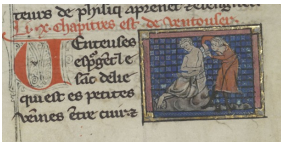 teurs de philiq aprenet & elengn
Li .x. chapitres est de ventouser.
Ventuses
espurget le
sac delie
qui est es petites
veines entre cuir &